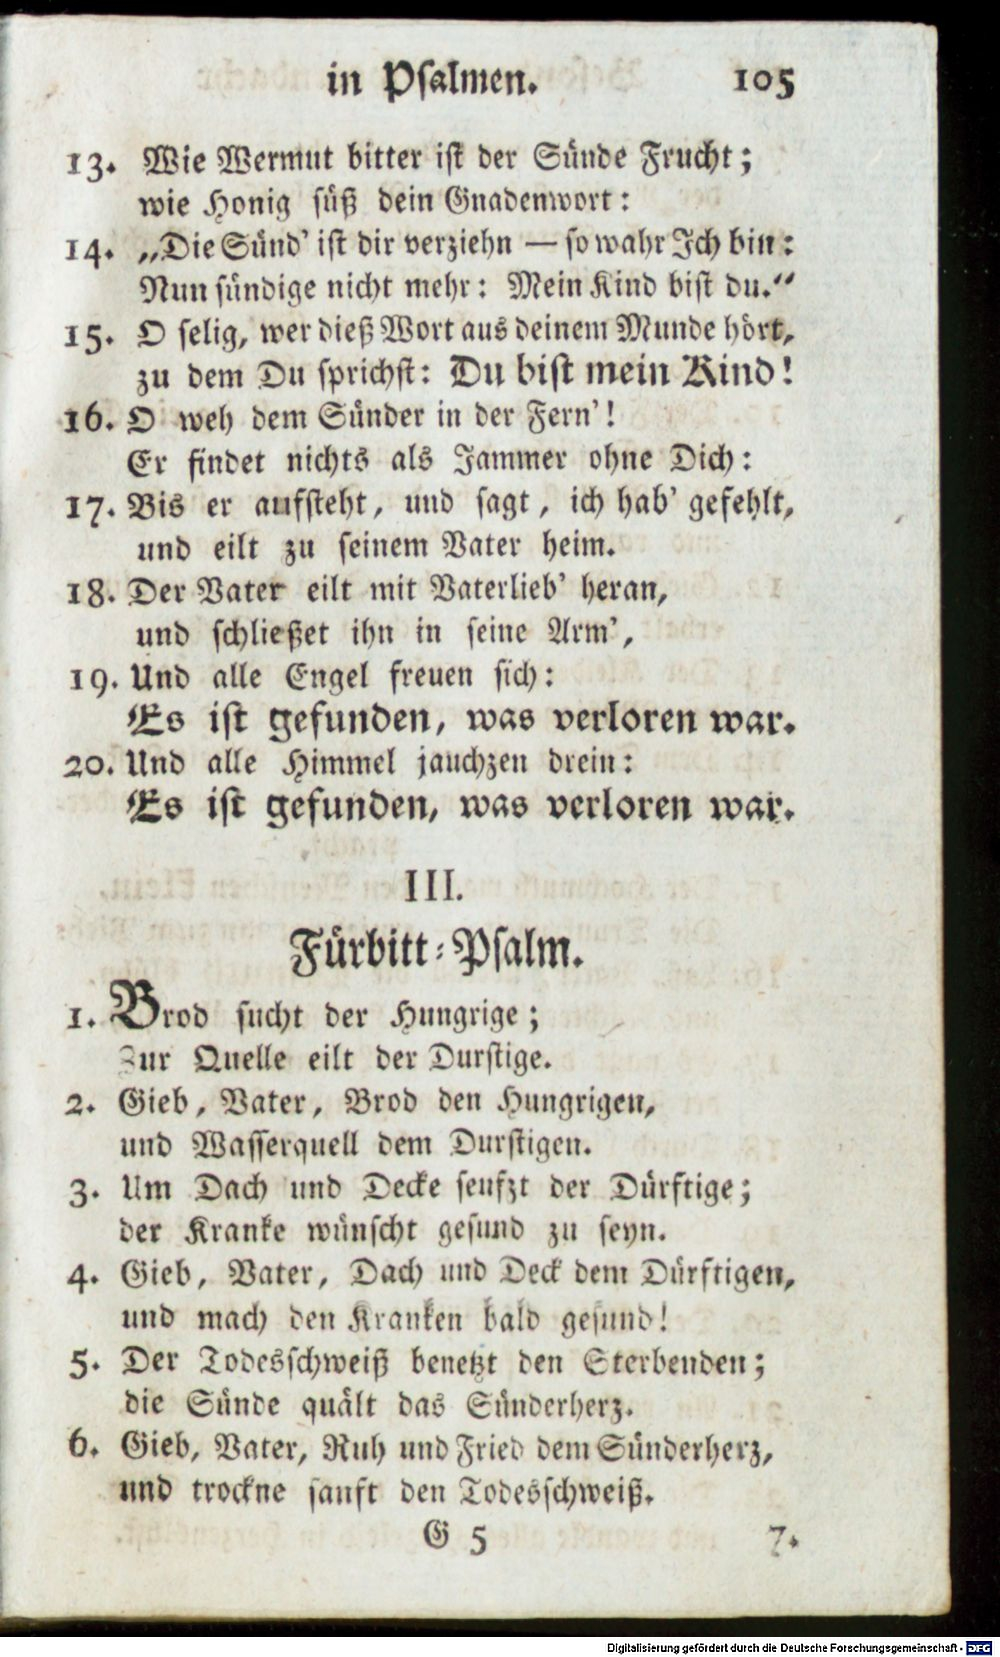 in Psalmen. 105
13. Wie Wermut bitter ist der Sünde Frucht;
wie Honig süß dein Gnadenwort:
14. „Die Sünd’ ist dir verziehn — so wahr Ich bin:
Nun sündige nicht mehr: Mein Kind bist du.“
15. O selig, wer dieß Wort aus deinem Munde hört,
zu dem Du sprichst: Du bist mein Kind!
16. O weh dem Sünder in der Fern’!
Er findet nichts als Jammer ohne Dich:
17. Bis er aufsteht, und sagt, ich hab’ gefehlt,
und eilt zu seinem Vater heim.
18. Der Vater eilt mit Vaterlieb’ heran,
und schließet ihn in seine Arm’,
19. Und alle Engel freuen sich:
Es ist gefunden, was verloren war.
20. Und alle Himmel jauchzen drein:
Es ist gefunden, was verloren war.
III.
Fürbitt-Psalm.
1. Brod sucht der Hungrige;
Zur Quelle eilt der Durstige.
2. Gieb, Vater, Brod den Hungrigen,
und Wasserquell dem Durstigen.
3. Um Dach und Decke seufzt der Dürftige;
der Kranke wünscht gesund zu seyn.
4. Gieb, Vater, Dach und Deck dem Dürftigen,
und mach den Kranken bald gesund!
5. Der Todesschweiß benetzt den Sterbenden;
die Sünde quält das Sünderherz.
6. Gieb, Vater, Ruh und Fried dem Sünderherz,
und trockne sanft den Todesschweiß.
G 5 7.
Digitalisierung gefördert durch die Deutsche Forschungsgemeinschaft - DFG